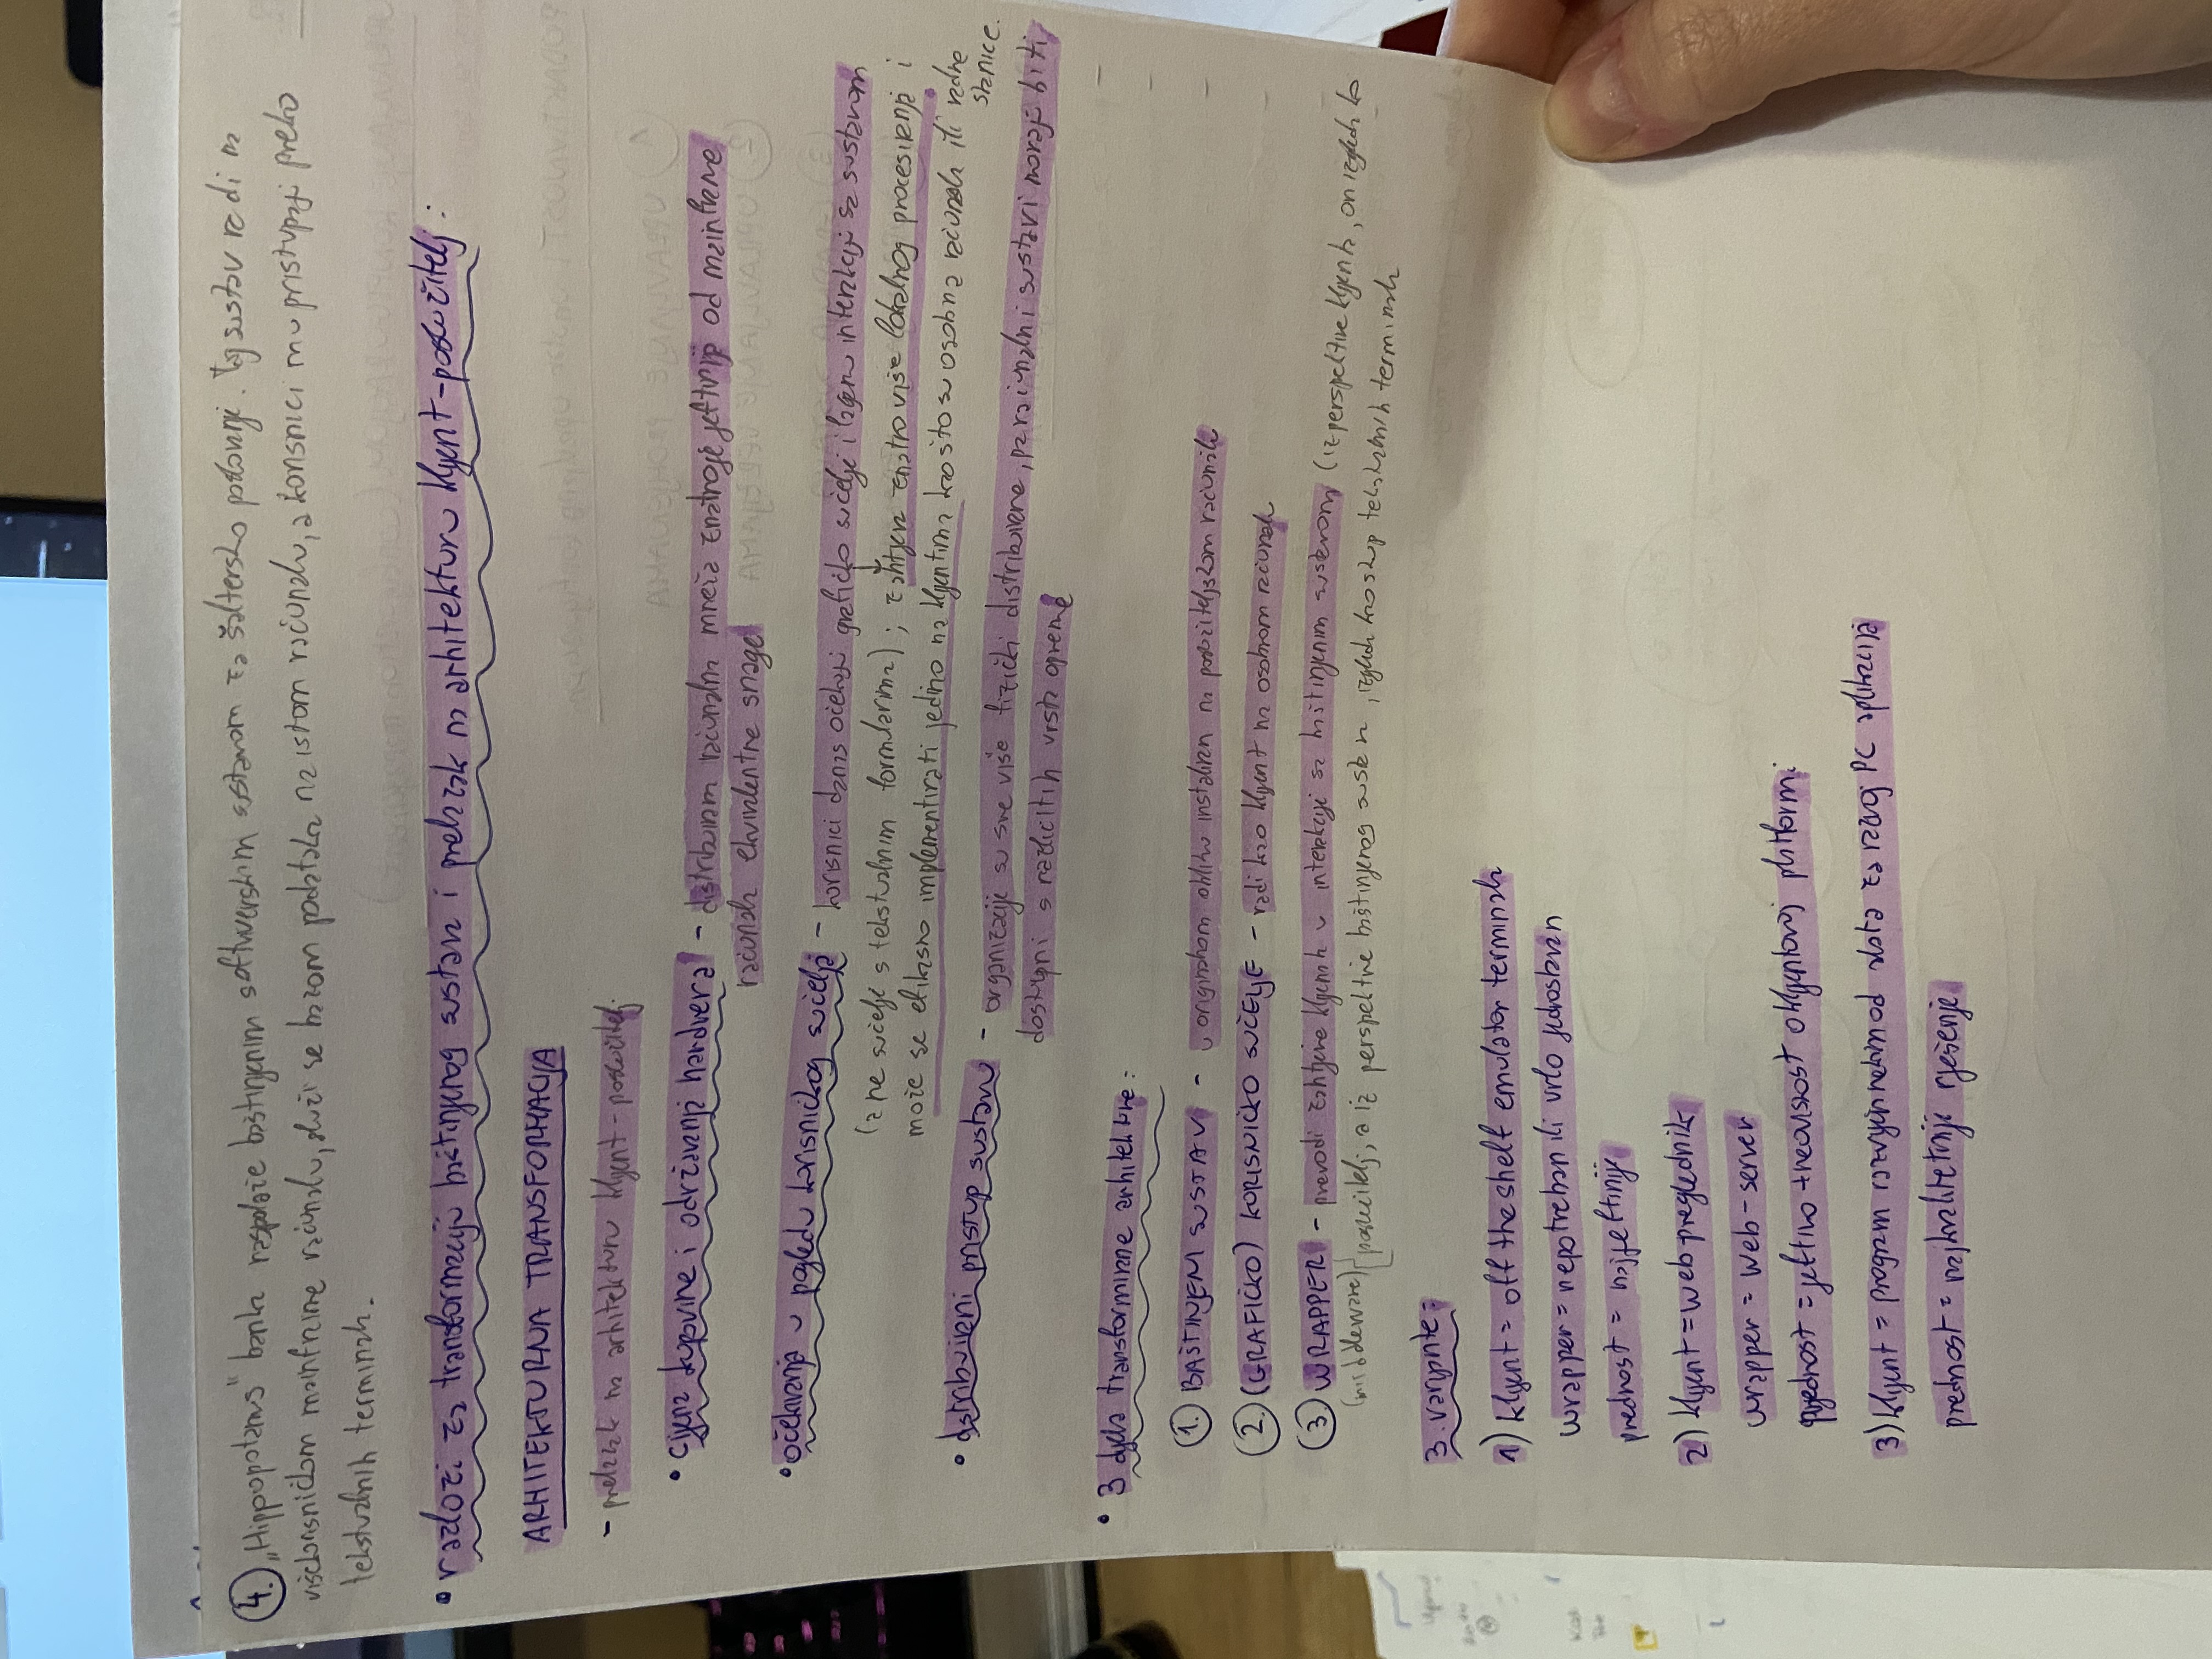 4. „Hippopotamus" banka raspolaže baštinjenim softverskim sustavom za šaltersko poslovanje. Taj sustav radi na
višekorisničkom mainframe računalu, služi se bazom podataka na istom računalu, a korisnici mu pristupaju preko
tekstualnih terminala.
• razlozi za transformaciju baštinjenog sustava i prelazak na arhitekturu klijent-poslužitelj:
ARHITEKTURNA TRANSFORMACIJA
- prelazak na arhitekturu klijent-poslužitelj
• cijena kupovine i održavanja hardvera - distribuirana računalna mreža znatno je jeftinija od mainframe
računala ekvivalentne snage
• očekivanja u pogledu korisničkog sučelja - korisnici danas očekuju grafičko sučelje i laganu interakciju sa sustavom
(a ne sučelje s tekstualnim formularima); zahtjeva znatno više lokalnog procesiranja i
može se efikasno implementirati jedino na klijentima kao što su osobna računala ili radne
stanice.
• distribuirani pristup sustavu - organizacije su sve više fizički distribuirane, pa računalni sustavi moraju biti
dostupni s različitih vrsta opreme
• 3 dijela transformirane arhitekture:
1. BAŠTINJENI SUSTAV - u originalnom obliku instaliran na poslužiteljskom računalu
2. (GRAFIČKO) KORISNIČKO SUČELJE - radi kao klijent na osobnom računalu
3. WRAPPER - prevodi zahtjeve klijenata u interakcije sa baštinjenim sustavom (iz perspektive klijenta, on izgleda ko
(middleware) poslužitelj, a iz perspektive baštinjenog sustava, izgleda kao skup tekstualnih terminala
3. varijante:
1) klijent = off the shelf emulator terminala
wrapper = nepotreban ili vrlo jednostavan
prednost = najjeftinije
2) klijent = web preglednik
wrapper = web-server
prednost = jeftino + neovisnost o klijentovoj platformi
3) klijent = program razvijen nekim od alata za razvoj PC aplikacija
prednost = najkvalitetnije rješenje